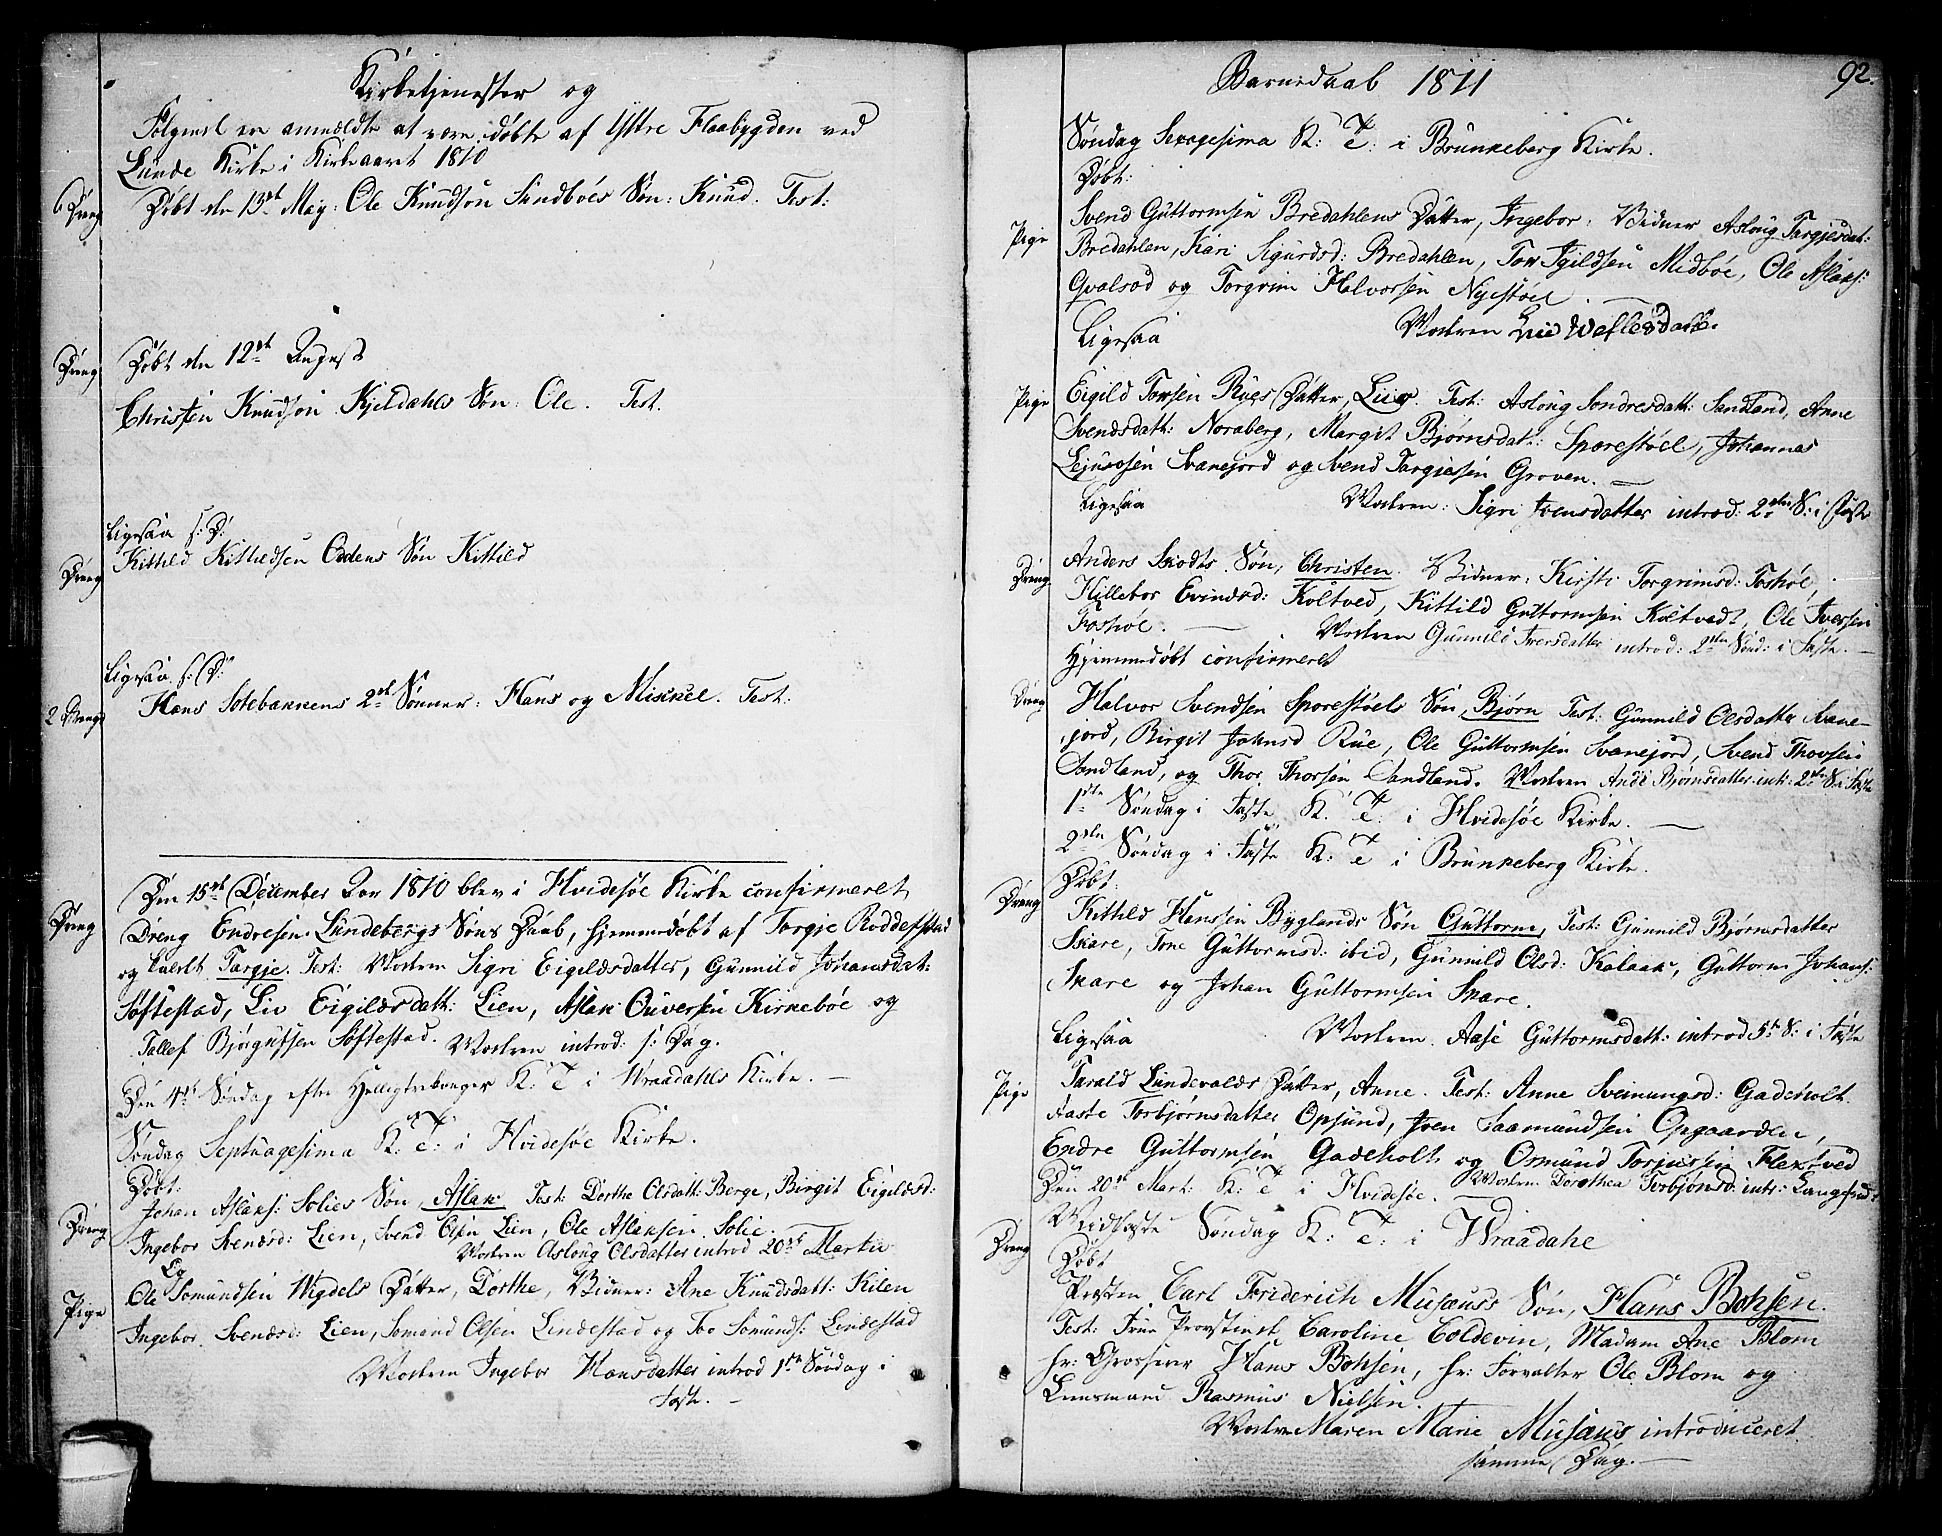 Kirketjenester og
Følgende ere anmældte at være døbte af Yttre Flaabygden ved
Lunde Kirke i Kirkeaaret 1810
6 Dreng
Døbt den 13de May: Ole Knudson Sundboes Søn: Knud. Test:
Dreng
Døbt den 12te August
Christen Knudson Kjeldahls Søn: Ole. Test.
Ligesaa s: D:
Dreng
Kittild Kittildsen Oddens Søn Kittild
Ligesaa s: D:
2 Drenge
Hans Sotebakkens 2de Sønner: Hans og Mickel. Test:
Den 15de December Aar 1810 blev i Hvidesøe Kirke confirmeret
Dreng
Dreng Endresen Lundebergs Søns Daab, hjemmedøbt af Torgje Roddestad
og kaldt Targje. Test: Moderen Sigri Eigildsdatter, Gunnild Johansdat:
Søftestad, Liv Eigildsdatt: Lien, Aslak Ouversen Kirkebøe og
Tallef Bjørgufsen Søftestad. Moderen introd: s: Dag.
Den 4de Søndag efter Helligtrekonger K: T: i Wraadahls Kirke. —
Søndag Septuagesima K: T: i Hvidesøe Kirke.
Døbt:
Johan Aslaks: Solies Søn, Aslak. Test: Dorthe Olsdatt: Berge, Birgit Eigildsd:
Dreng
Ingebor Svendsd: Lien, Svend Olsen Lien, Ole Aslaksen Solie.
Moderen Asloug Olsdatter introd 20de Martii
Og
Ole Somundsen Wigdels Datter, Dorthe, Vidner: Ane Knudsdatt: Kilen
Pige
Ingebor Svendsd: Lien, Somund Olsen Lindestad og Tov Somunds: Lindestad
Moderen Ingebor Hansdatter introd 1ste Søndag i
Faste. —
Barnedaab 1811
92.
Søndag Sexagesima K: T: i Brunkeberg Kirke.
Døbt:
Svend Guttormsen Bredahlens Datter, Ingebor: Vidner Asloug Targjesdat:
Pige
Bredahlen, Kari Sigurdsd: Bredahlen, Tow Egildsen Midbøe, Ole Aslaks:
Qvalsod og Torgrim Halvorsen Nyestøel.
Ligesaa Moderen Liv Wetlesdatt.
Pige
Eigild Towsen Rues Datter, Liv. Test: Asloug Sondresdatt: Sandland, Anne
Svendsdatt: Noraberg, Margit Bjørnsdat: Sporestøel, Johannes
Lejulvsen Svanejord og Svend Targjesen Groven. —
Ligesaa Moderen: Sigri Ivensdatter introd: 2den S: i Faste
Dreng
Anders Skodes Søn, Christen. Vidner: Kirsti Torgrimsd: Foshøl,
Hillebor Evindsd: Koltved, Kittild Guttormsen Koltvedt, Ole Iversen
Foshøl. — Moderen Gunnild Iversdatter introd: 2den Sønd: i Faste. —
Hjemmedøbt confirmeret
Dreng
Halvor Svendsen Sporestøels Søn, Bjørn Test: Gunnild Olsdatter Svane-
jord, Birgit Johnsd Rue, Ole Guttormsen Svanejord, Svend Thovsen
Sandland, og Thor Thorsen Sandland. Moderen Anne Bjørnsdatter int: 2den S. i Faste
1ste Søndag i Faste K: T: i Hvidesøe Kirke. —
2den Søndag i Faste K: T: i Brunkeberg Kirke.
Døbt:
Dreng
Kittild Hanssen Byglands Søn Guttorm, Test: Gunnild Bjørnsdatter
Skare, Tone Guttormsd: ibid, Gunnild Olsd: Kalaak, Guttorm Johans:
Skare og Johan Guttormsen Skare.
Ligesaa Moderen. Aase Guttormsdatt: introd 5te S: i Faste
Pige
Tarald Lundevalds Datter, Anne. Test: Anne Sveinungsd: Gadeholt.
Aaste Torbjørnsdatter Opsund, Iven Saamundsen Opgaarden,
Endre Guttormsen Gadeholt og Osmund Torjussen Flekstved
Den 20de Mart: K: T: i Hvidesøe. Moderen Dorothea Torbjørnsd: intr: Langfred:
Midfaste Søndag K: T: i Wraadahl
Dreng
Døbt
Præsten Carl Friderich Musæuss Søn, Hans Bohsen.
Test: Frue Provstinde Caroline Coldevin, Madam Ane Blom
Hr: Grosserer Hans Bohsen, Hr: Forvalter Ole Blom og
Lensmand Rasmus Nielsen.
Moderen Maren Marie Musæus introduceret
samme Dag. —